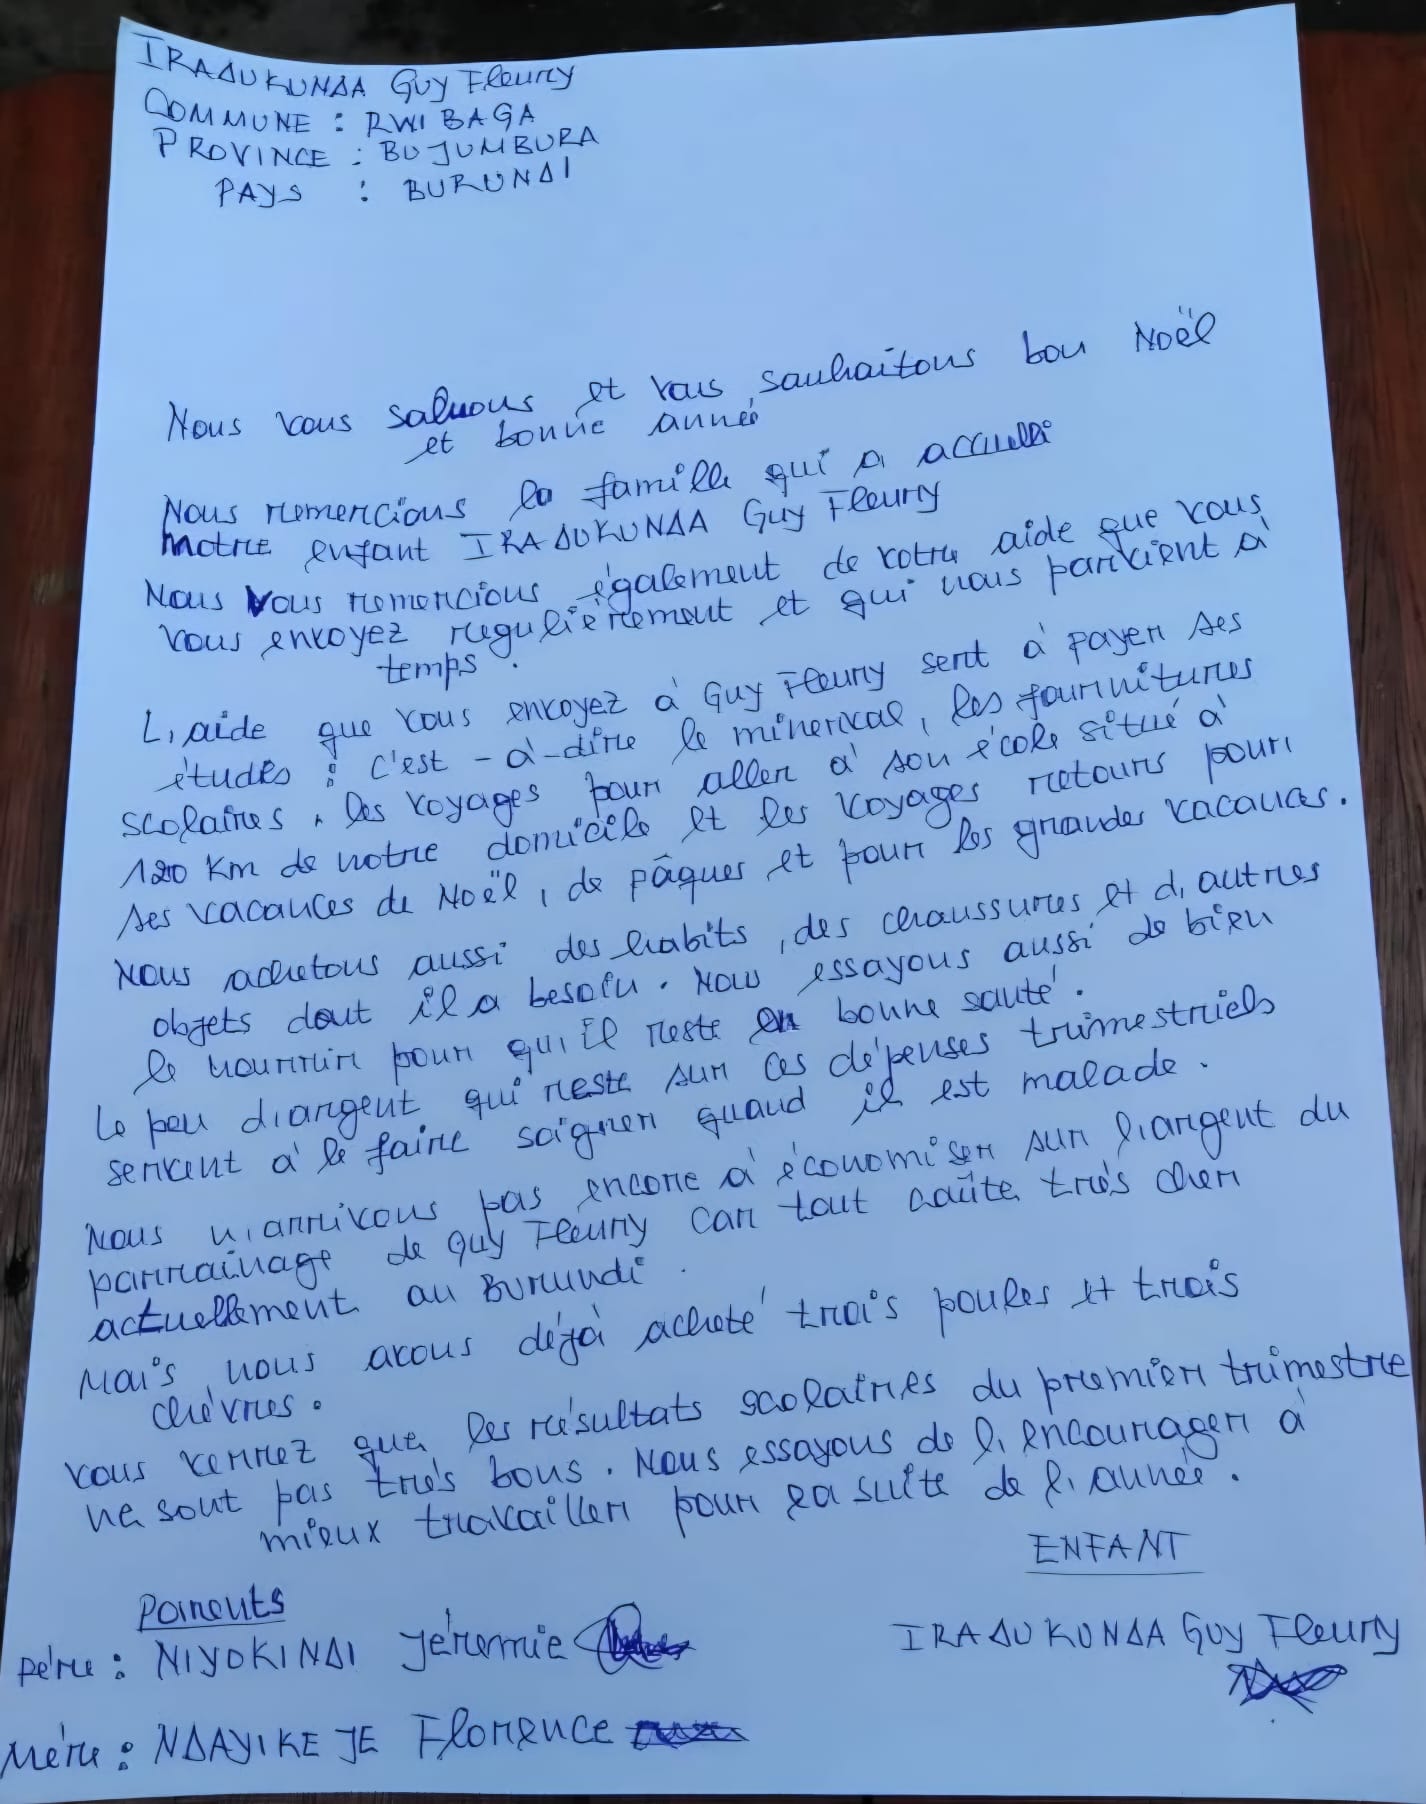 IRADUKUNDA Guy Fleury
COMMUNE : RWIBAGA
PROVINCE : BUJUMBURA
PAYS : BURUNDI
Nous vous saluons et vous souhaitons bon Noël
et bonne année
Nous remercions la famille qui a accuelli
notre enfant IRADUKUNDA Guy Fleury
Nous vous remercions également de votre aide que vous
vous envoyez regulièrement et qui nous parvient à
temps.
L'aide que vous envoyez à Guy Fleury sert à payer ses
études : c'est-à-dire le minerval, les fournitures
scolaires, les voyages pour aller à son école situé à
120 Km de notre domicile et les voyages retours pour
ses vacances de Noël, de pâques et pour les grandes vacances.
Nous achetons aussi des habits, des chaussures et d'autres
objets dont il a besoin. Nous essayons aussi de bien
le nourrir pour qu'il reste en bonne santé.
Le peu d'argent qui reste sur ces dépenses trimestriels
servent à le faire soigner quand il est malade.
Nous n'arrivons pas encore à économiser sur l'argent du
parrainage de Guy Fleury car tout coûte très cher
actuellement au Burundi.
Mais nous avons déjà acheté trois poules et trois
chèvres.
Vous verrez que les résultats scolaires du premier trimestre
ne sont pas très bons. Nous essayons de l'encourager à
mieux travailler pour la suite de l'année.
ENFANT
Parents
père : NIYOKINDI Jérémie
IRADUKUNDA Guy Fleury
Mère : NDAYIKEJE Florence